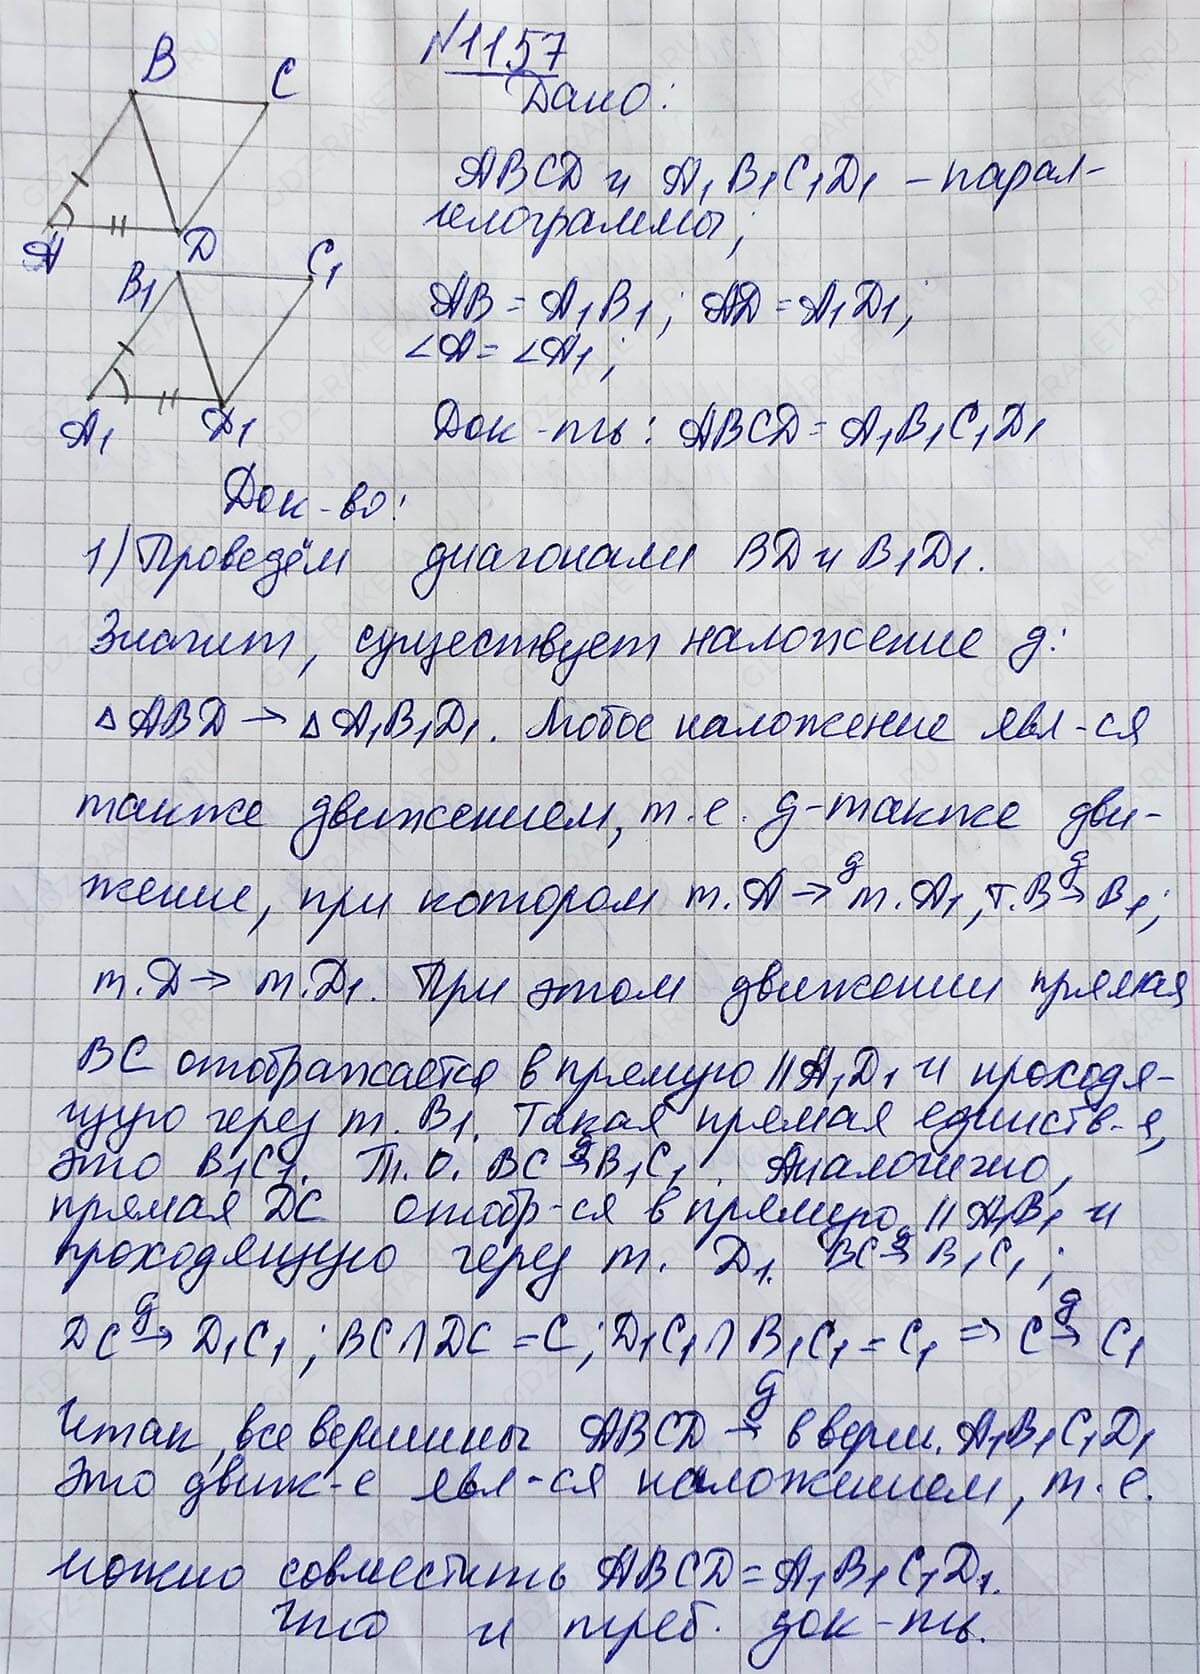 №1157
Дано:
B
C
A
D
B₁
C₁
A₁
D₁
ABCD и A₁B₁C₁D₁ – парал-
лелограммы;
AB = A₁B₁; AD = A₁D₁;
∠A = ∠A₁;
Док-ть: ABCD = A₁B₁C₁D₁
Док-во:
1) Проведём диагонали BD и B₁D₁.
Значит, существует наложение g:
△ABD → △A₁B₁D₁. Любое наложение явл-ся
также движением, т.е. g-также дви-
жение, при котором т.A →g т.A₁, т.B →g B₁;
т.D → т.D₁. При этом движении прямая
BC отображается в прямую || A₁D₁ и проходя-
щую через т. B₁. Такая прямая единств-я,
это B₁C₁. Т.о. BC →g B₁C₁. Аналогично,
прямая DC отобр-ся в прямую || A₁B₁ и
проходящую через т. D₁. BC →g B₁C₁;
DC →g D₁C₁; BC ∩ DC = C; D₁C₁ ∩ B₁C₁ = C₁ => C →g C₁
Итак, все вершины ABCD →g в верш. A₁B₁C₁D₁
это движ-е явл-ся наложением, т.е.
можно совместить ABCD = A₁B₁C₁D₁.
Что и треб. док-ть.